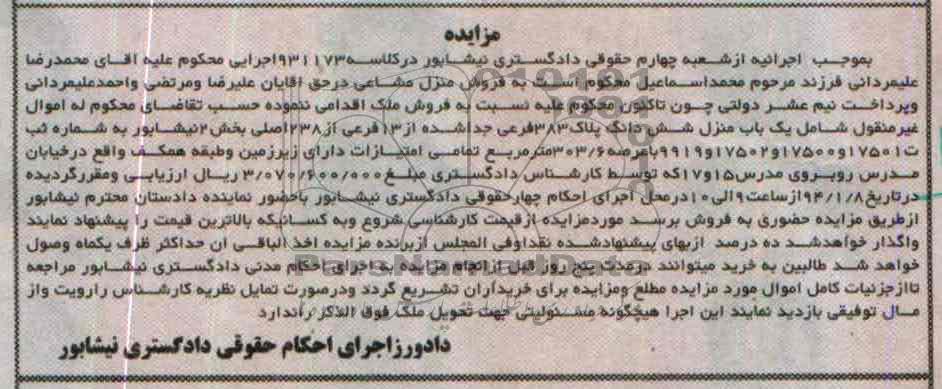 مزایده
بموجب اجرائیه ازشعبه چهارم حقوقی دادگستری نیشابور درکلاسه ۹۳۱۱۷۳اجرایی محکوم علیه اقای محمدرضا
علیمردانی فرزند مرحوم محمداسماعیل محکوم است به فروش منزل مشاعی درحق اقایان علیرضا ومرتضی واحمدعلیمردانی
وپرداخت نیم عشر دولتی چون تاکنون محکوم علیه نسبت به فروش ملک اقدامی ننموده حسب تقاضای محکوم له اموال
غیرمنقول شامل یک باب منزل شش دانگ پلاک۳۸۳فرعی جداشده از۱۳فرعی از۲۳۸اصلی بخش۲نیشابور به شماره ثب
ت۱۷۵۰۱و۱۷۵۰۰و۱۷۵۰۲و۹۹۱۹باعرصه۳۰۳/۶مترمربع تمامی امتیازات دارای زیرزمین وطبقه همکف واقع درخیابان
مدرس روبروی مدرس۱۵و۱۷که توسط کارشناس دادگستری مبلغ۳/۰۷۰/۶۰۰/۰۰۰ ریال ارزیابی ومقررگردیده
درتاریخ۹۴/۱/۸ازساعت۹الی۱۰درمحل اجرای احکام چهارحقوقی دادگستری نیشابور باحضور نماینده دادستان محترم نیشابور
ازطریق مزایده حضوری به فروش برسد موردمزایده ازقیمت کارشناسی شروع وبه کسانیکه بالاترین قیمت را پیشنهاد نمایند
واگذار خواهدشد ده درصد ازبهای پیشنهادشده نقداوفی المجلس ازبرنده مزایده اخذ الباقی ان حداکثر ظرف یکماه وصول
خواهد شد طالبین به خرید میتوانند درمدت پنج روز قبل ازانجام مزایده به اجرای احکام مدنی دادگستری نیشابور مراجعه
تاازجزئیات کامل اموال مورد مزایده مطلع ومزایده برای خریداران تشریع گردد ودرصورت تمایل نظریه کارشناس رارویت واز
مال توفیقی بازدید نمایند این اجرا هیچگونه مسئولیتی جهت تحویل ملک فوق الذکر راندارد
دادورزاجرای احکام حقوقی دادگستری نیشابور
ParsNamadData